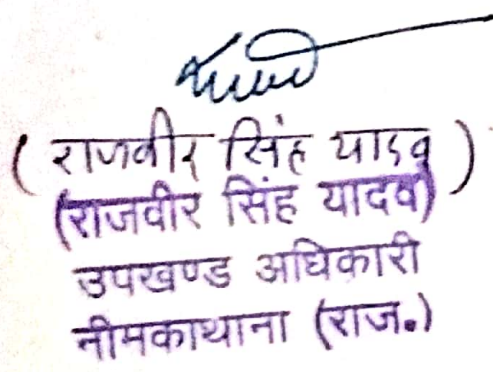 ( राजवीर सिंह यादव )
(राजवीर सिंह यादव)
उपखण्ड अधिकारी
नीमकाथाना (राज.)